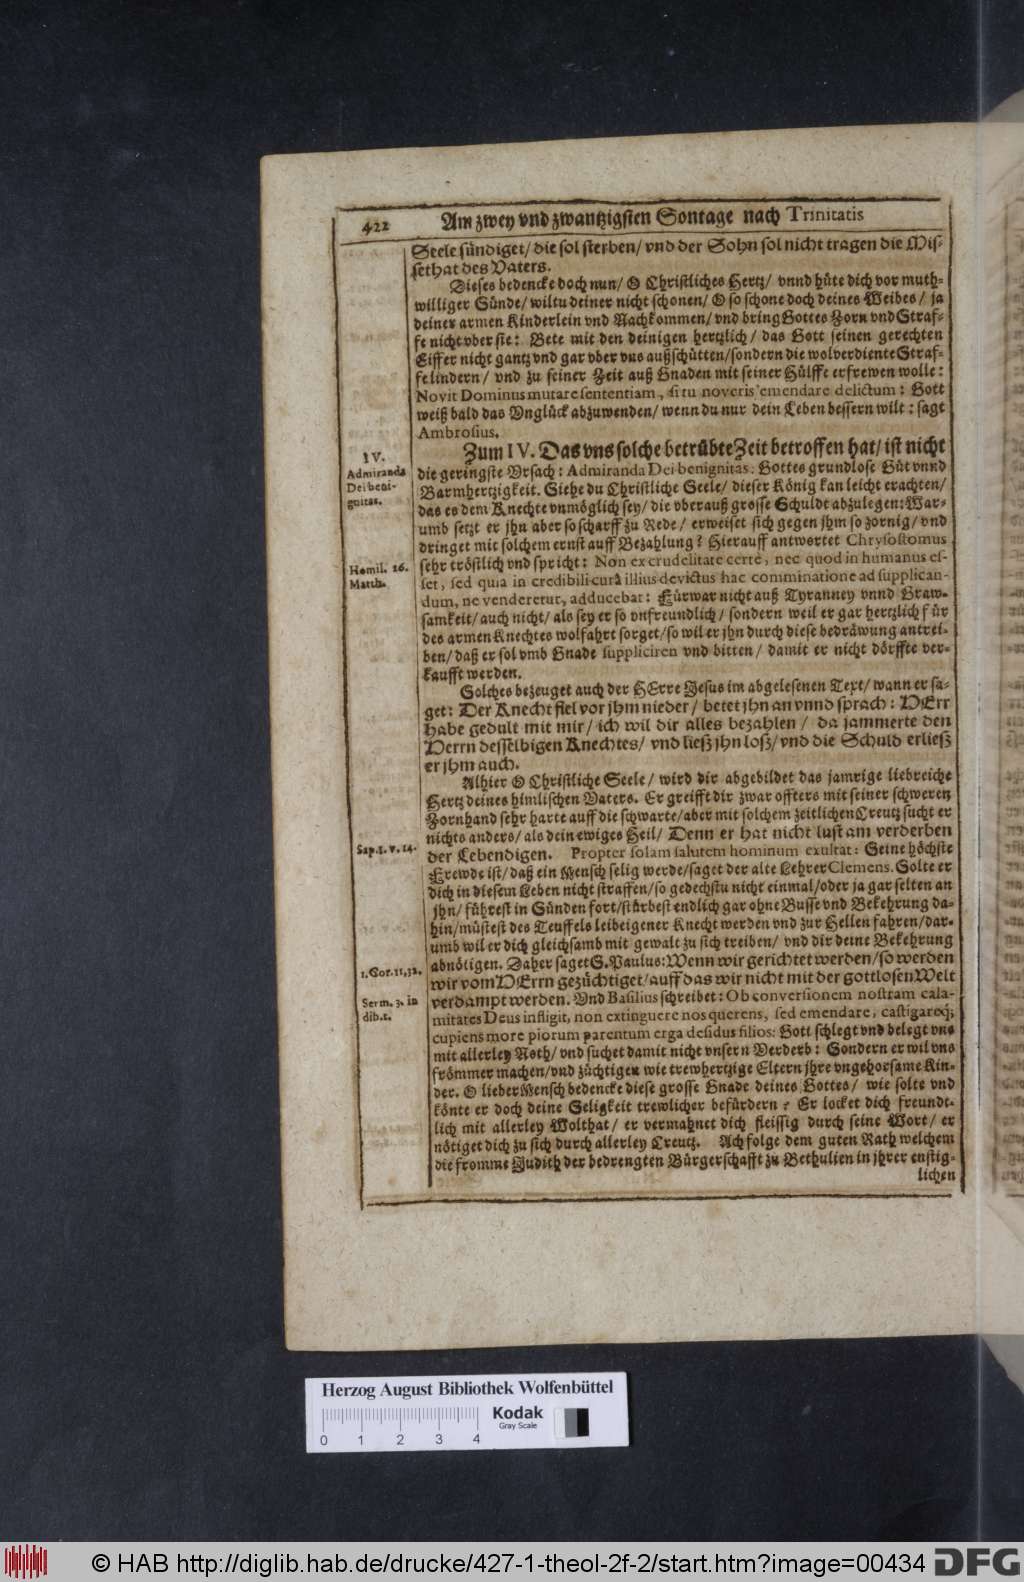 422 Am zwey vnd zwantzigsten Sontage nach Trinitatis
Seele sündiget/ die sol sterben/ vnd der Sohn sol nicht tragen die Mis-
sethat des Vaters.
Dieses bedencke doch nun/ O Christliches Hertz/ vnnd hüte dich vor muth-
williger Sünde/ wiltu deiner nicht schonen/ O so schone doch deines Weibes/ ja
deiner armen Kinderlein vnd Nachkommen/ vnd bring Gottes Zorn vnd Straf-
fe nicht vber sie: Bete mit den deinigen hertzlich/ das Gott seinen gerechten
Eiffer nicht gantz vnd gar vber vns außschütten/ sondern die wolverdiente Straf-
fe lindern/ vnd zu seiner Zeit auß Gnaden mit seiner Hülffe erfrewen wolle:
Novit Dominus mutare sententiam, si tu noveris emendare delictum: Gott
weiß bald das Vnglück abzuwenden/ wenn du nur dein Leben bessern wilt: sagt
Ambrosius.
IV.
Admiranda
Dei beni-
gnitas.
Zum IV. Das vns solche betrübte Zeit betroffen hat/ ist nicht
die geringste Vrsach: Admiranda Dei benignitas: Gottes grundlose Güt vnnd
Barmhertzigkeit. Siehe du Christliche Seele/ dieser König kan leicht erachten/
das es dem Knechte vnmöglich sey/ die vberauß grosse Schuldt abzulegen: War-
umb setzt er jhn aber so scharff zu Rede/ erweiset sich gegen jhm so zornig/ vnd
dringet mit solchem ernst auff Bezahlung? Hierauff antwortet Chrysostomus
Homil. 16.
Matth.
sehr tröstlich vnd spricht: Non ex crudelitate certe, nec quod inhumanus es-
set, sed quia incredibili curâ illius devictus hac comminatione ad supplican-
dum, ne venderetur, adducebat: Fürwar nicht auß Tyranney vnnd Graw-
samkeit/ auch nicht/ als sey er so vnfreundlich/ sondern weil er gar hertzlich für
des armen Knechtes wolfahrt sorget/ so wil er jhn durch diese bedräwung antrei-
ben/ daß er sol vmb Gnade suppliciren vnd bitten/ damit er nicht dörffte ver-
kaufft werden.
Solches bezeuget auch der HErre Jesus im abgelesenen Text/ wann er sa-
get: Der Knecht fiel vor jhm nieder/ betet jhn an vnnd sprach: HErr
habe gedult mit mir/ ich wil dir alles bezahlen/ da jammerte den
Herrn desselbigen Knechtes/ vnd ließ jhn loß/ vnd die Schuld erließ
er jhm auch.
Alhier O Christliche Seele/ wird dir abgebildet das jamrige liebreiche
Hertz deines himlischen Vaters. Er greifft dir zwar offters mit seiner schweren
Zornhand sehr harte auff die schwarte/ aber mit solchem zeitlichen Creutz sucht er
nichts anders/ als dein ewiges Heil/ Denn er hat nicht lust am verderben
Sap. 1. v. 14.
der Lebendigen. Propter solam salutem hominum exultat: Seine höchste
Frewde ist/ daß ein Mensch selig werde/ saget der alte Lehrer Clemens. Solte er
dich in diesem Leben nicht straffen/ so gedechstu nicht einmal/ oder ja gar selten an
jhn/ führest in Sünden fort/ stürbest endlich gar ohne Busse vnd Bekehrung da-
hin/ müstest des Teuffels leibeigener Knecht werden vnd zur Hellen fahren/ dar-
umb wil er dich gleichsamb mit gewalt zu sich treiben/ vnd dir deine Bekehrung
abnötigen. Daher saget S. Paulus: Wenn wir gerichtet werden/ so werden
1. Cor. 11, 32.
wir vom HErrn gezüchtiget/ auff das wir nicht mit der gottlosen Welt
Serm. 3. in
dib. 1.
verdampt werden. Vnd Basilius schreibet: Ob conversionem nostram cala-
mitates Deus infligit, non extinguere nos querens, sed emendare, castigareq;
cupiens more piorum parentum erga desidus filios: Gott schlegt vnd belegt vns
mit allerley Noth/ vnd suchet damit nicht vnsern Verderb: Sondern er wil vns
frömmer machen/ vnd züchtigen wie trewhertzige Eltern jhre vngehorsame Kin-
der. O lieber Mensch bedencke diese grosse Gnade deines Gottes/ wie solte vnd
könte er doch deine Seligkeit trewlicher befürdern? Er locket dich freundt-
lich mit allerley Wolthat/ er vermahnet dich fleissig durch seine Wort/ er
nötiget dich zu sich durch allerley Creutz. Ach folge dem guten Rath welchem
die fromme Judith der bedrengten Bürgerschafft zu Bethulien in jhrer enstig-
lichen
Herzog August Bibliothek Wolfenbüttel
Kodak
Gray Scale
0 1 2 3 4
© HAB http://diglib.hab.de/drucke/427-1-theol-2f-2/start.htm?image=00434 DFG